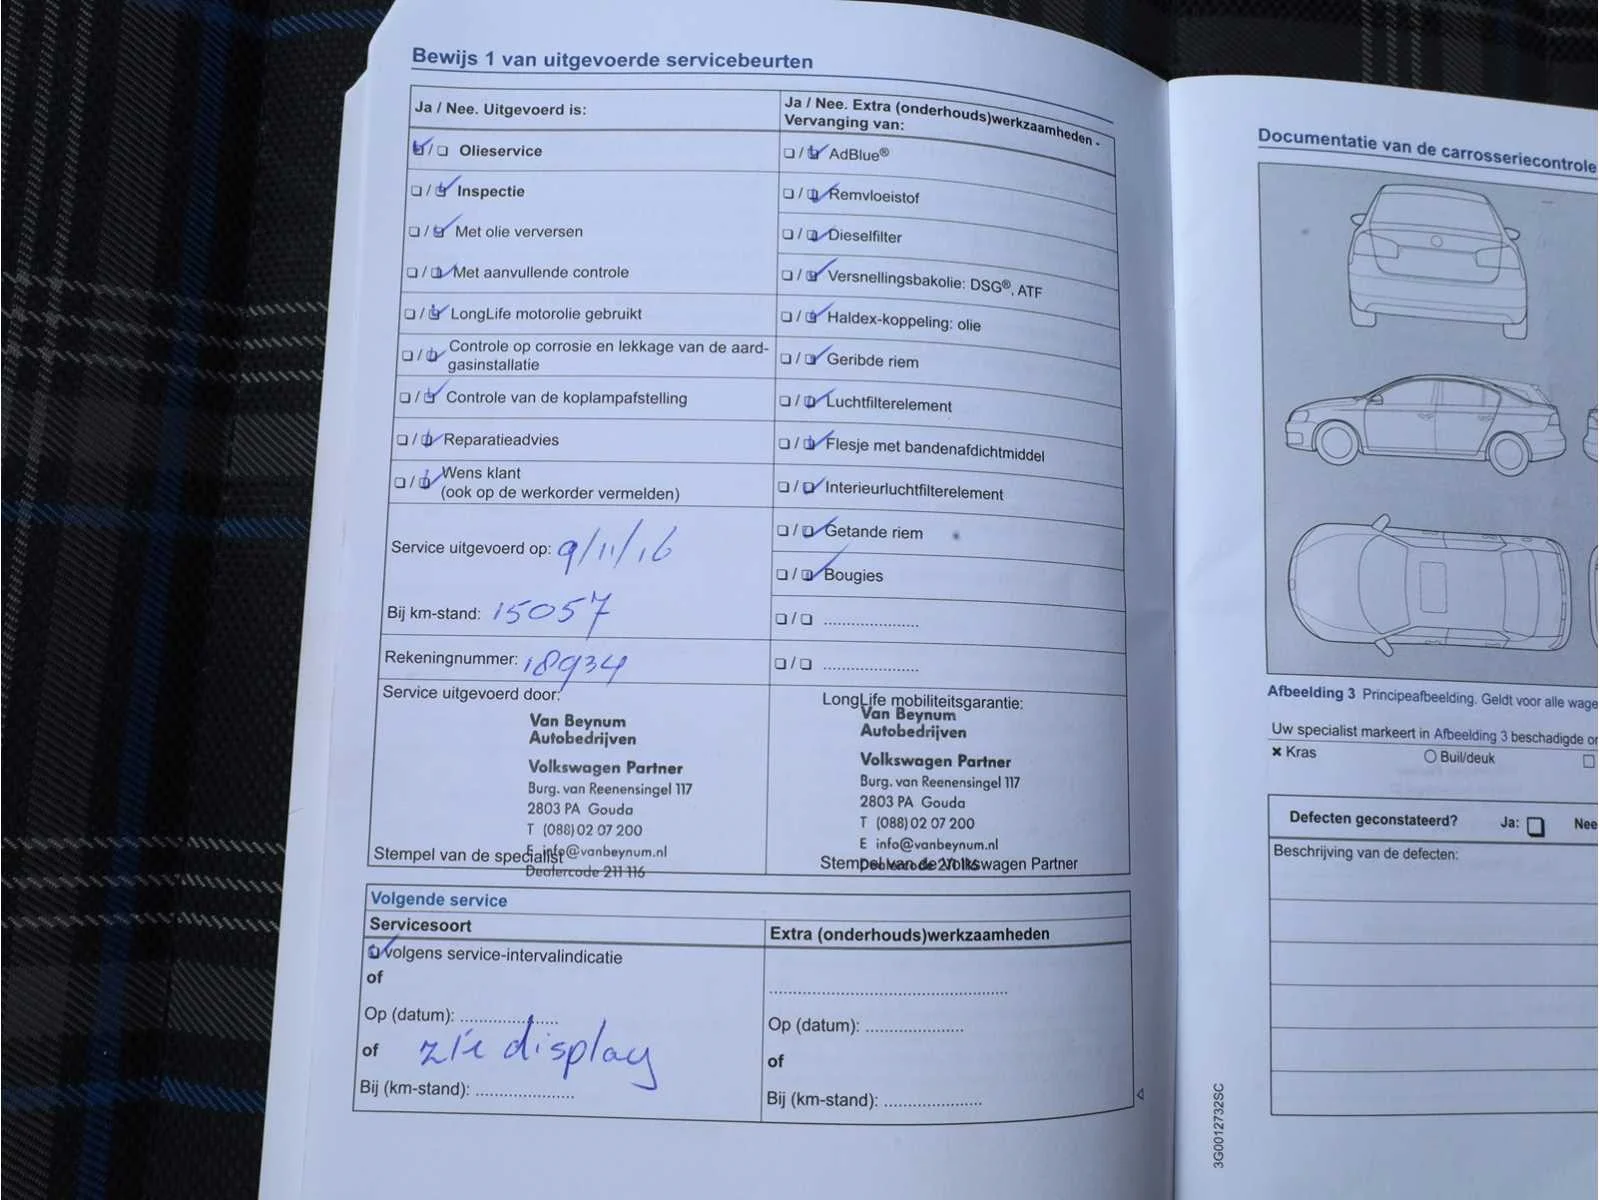 Bewijs 1 van uitgevoerde servicebeurten
Ja / Nee. Uitgevoerd is:
Olieservice
Inspectie
Met olie verversen
Met aanvullende controle
LongLife motorolie gebruikt
Controle op corrosie en lekkage van de aard-
gasinstallatie
Controle van de koplampafstelling
Reparatieadvies
Wens klant
(ook op de werkorder vermelden)
Service uitgevoerd op: 9/11/16
Bij km-stand: 15057
Rekeningnummer: 18934
Service uitgevoerd door:
Van Beynum
Autobedrijven
Volkswagen Partner
Burg. van Reenensingel 117
2803 PA Gouda
T (088) 02 07 200
E info@vanbeynum.nl
Stempel van de specialist
Dealercode 211 116
Ja / Nee. Extra (onderhouds)werkzaamheden -
Vervanging van:
AdBlue®
Remvloeistof
Dieselfilter
Versnellingsbakolie: DSG®, ATF
Haldex-koppeling: olie
Geribde riem
Luchtfilterelement
Flesje met bandenafdichtmiddel
Interieurluchtfilterelement
Getande riem
Bougies
....................
....................
LongLife mobiliteitsgarantie:
Van Beynum
Autobedrijven
Volkswagen Partner
Burg. van Reenensingel 117
2803 PA Gouda
T (088) 02 07 200
E info@vanbeynum.nl
Stempel van de Volkswagen Partner
Volgende service
Servicesoort
volgens service-intervalindicatie
of
Op (datum): ....................
of zie display
Bij (km-stand): ....................
Extra (onderhouds)werkzaamheden
..................................................
Op (datum): ....................
of
Bij (km-stand): ....................
Documentatie van de carrosseriecontrole
Afbeelding 3 Principeafbeelding. Geldt voor alle wage
Uw specialist markeert in Afbeelding 3 beschadigde
Kras
Buil/deuk
Defecten geconstateerd? Ja: Nee
Beschrijving van de defecten:
3G0012732SC